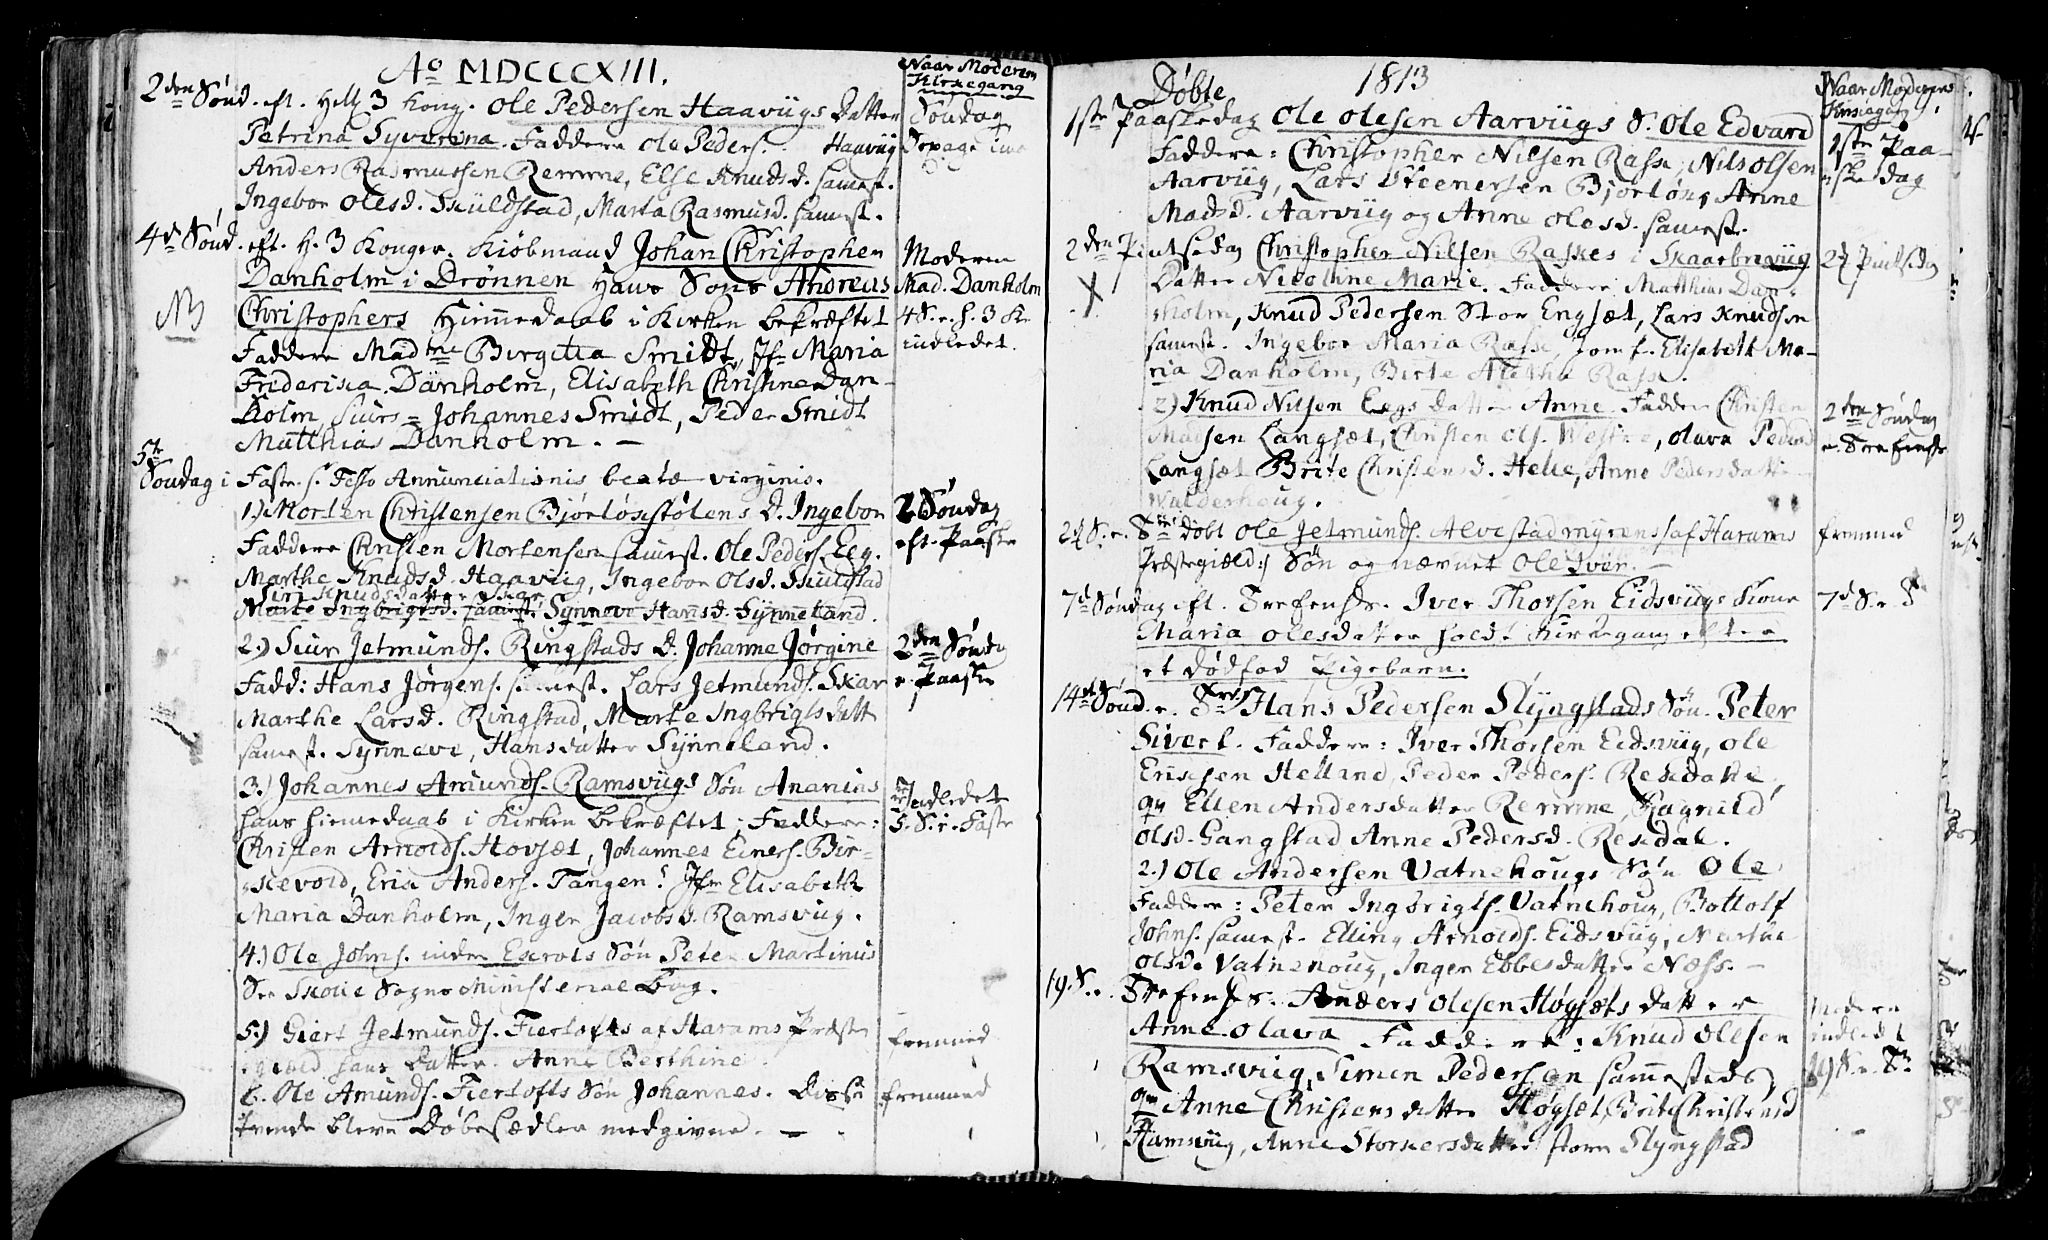 Ao MDCCCXIII.
Naar Moderen
Kirkegang
2den Sönd. eft. Hell 3 Kong. Ole Pedersen Haaviigs Datter
Petrina Syverina. Faddere Ole Peders. Haaviig
Anders Rasmussen Remme, Else Knudsd. samest.
Ingebor Olesd. Skuldstad, Marta Rasmusd. samest.
Söndag
4de Sönd. eft. H. 3 Konger. Kiöbmand Johan Christopher
Danholm i Drönnen Hans Sön Andreas
NB Christophers Hiemmedaab i Kirken bekræftet
Faddere Madme Birgitta Smidt, Jfr Maria
Friderica Danholm, Elisabeth Christine Dan-
holm Siurs = Johannes Smidt, Peder Smidt
Matthias Danholm. —
Moderen
Mad. Danholm
4 S. e. H. 3 K.
indledet.
5te
Söndag i Faste s. Festo Annunciationis beatæ virginis.
1) Morten Christensen Bjørløsstölens D. Ingebor
Faddere Christen Mortensen samest. Ole Peders. Eeg.
Marthe Knudsd. Haaviig, Ingebor Olsd. Skulstad
Siri Knudsdatter Skar
Marte Ingbrigtsd. samest. Synneve Hansd. Synneland.
2 Söndag
eft. Paaske
2.) Siur Jetmunds. Ringstads D. Johanne Jörgine
Fadd: Hans Jörgens. samest. Lars Jetmunds. Skar
Marthe Larsd. Ringstad, Marte Ingbrigts datt
samest. Synneve, Hansdatter Synneland.
2den Sönda
e. Paaske
3.) Johannes Amunds. Ramsviigs Sön Ananias
hans hiemedaab i Kirken bekræftet; Faddere:
Christen Arnolds. Hovsæt, Johannes Einers. Bir-
kevold, Eric Anders. Tangen! Jfr Elisabeth
Maria Danholm, Inger Jacobsd. Ramsviig.
Indledet
5. S. i. Faste
4.) Ole Johns. inden Sön Peter Martinus
See Skoue Sogns Ministerial Bog.
5.) Giert Jetmunds. Fiertofts af Harams Præste
gield hans Datter. Anne Berthine
fremmed
6. Ole Amunds. Fiertofts Sön Johannes. Disse
tvende bleve Döbesedler medgivne. —
fremmed
Döbte 1813
Naar Moderens
Kirkegang
1ste Paaskedag Ole Olesen Aarviigs S. Ole Edvard
Faddere: Christopher Nilsen Rasse, Nils Olsen
Aarviig, Lars Steenersen Bjørløw, Anne
Madsd. Aarviig og Anne Olesd. samest.
1ste Paa-
ske dag
2den Pintsedag Christopher Nilsen Raskes i Skaarbreviig
X Datter Nicoline Marie. Faddere Matthias Dan-
holm, Knud Pedersen Stor Engsæt, Lars Knudsen
samest. Ingebor Maria Rasse, Jomf. Elisabeth Ma-
ria Danholm, Birte Alethe Rasse.
2d Pintsedag
2) Knud Nilsen Eegs Datter Anne. Faddere Christen
Madsen Langsæt, Christen Ols. Westre, Olava Pedersd
Langsæt Brite Christensd. Helle, Anne Pedersdatter
Walderhoug.
2den Söndag
2d S. e. Döbt Ole Jetmunds. Alvestadmyrens af Harams
Præstegiæld: Sön og nævnet Ole Iver. —
fremmed
7de Söndag eft. Trefoens. Iver Thorsen Eidsviigs Kone
Maria Olesdatter holdt Kirkegang efter
et Dödfød Pigebarn.
7de S. e. T
14de Sönd. e. Hans Pedersen Slyngstads Sön Peter
Sivert. Faddere: Iver Thorsen Eidsviig, Ole
Ericsen Helland, Peder Peders. Resdahl,
qv Ellen Andersdatter Remme, Ragnild
Olsd. Gangstad Anne Pedersd. Resdal.
2.) Ole Andersen Vatnehougs Sön Ole
Faddere: Peter Ingbrigts. Vatnehoug, Bottolf
Johns. samest. Elling Arnolds. Eidsviig, Marthe
Olsd. Vatnehoug, Inger Ebbesdatter Næss. —
19 S. e. Anders Olesen Høgsæts Datter
Anne Olava Faddere: Knud Olesen
Ramsviig, Simen Pedersen sammesteds,
qv Anne Christensdatter Høgsæt, Brite Christensd
Ramsviig, Anne Storkersdatter store Slyngstad
Moderen
indledet